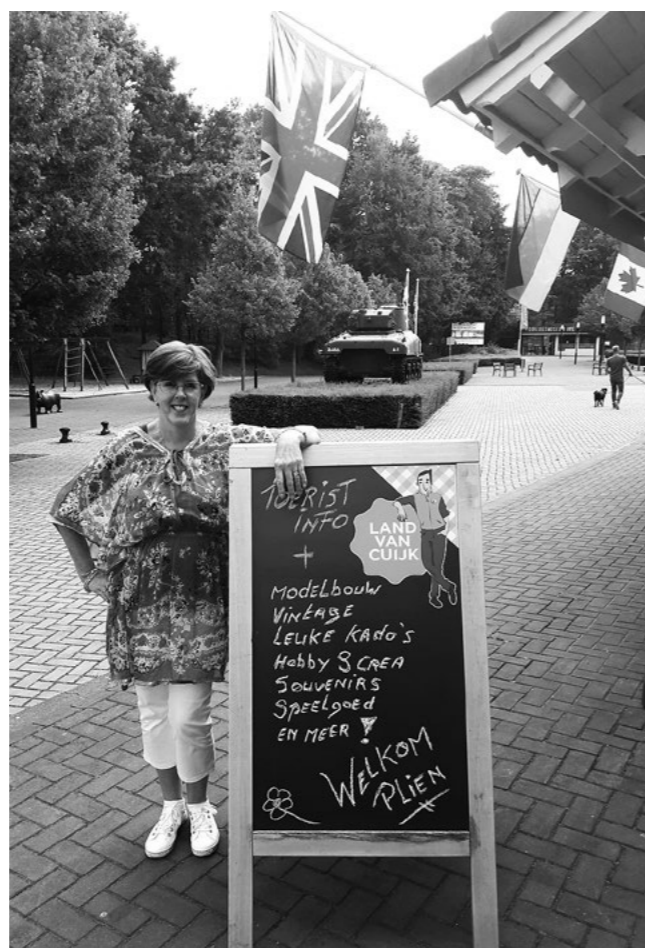 TOERIST
INFO
+
LAND
VAN
CUIJK
MODELBOUW
VINTAGE
LEUKE KADO'S
Hobby & CREA
SOUVENIRS
Speelgoed
EN MEER!
WELKOM
PLIEN